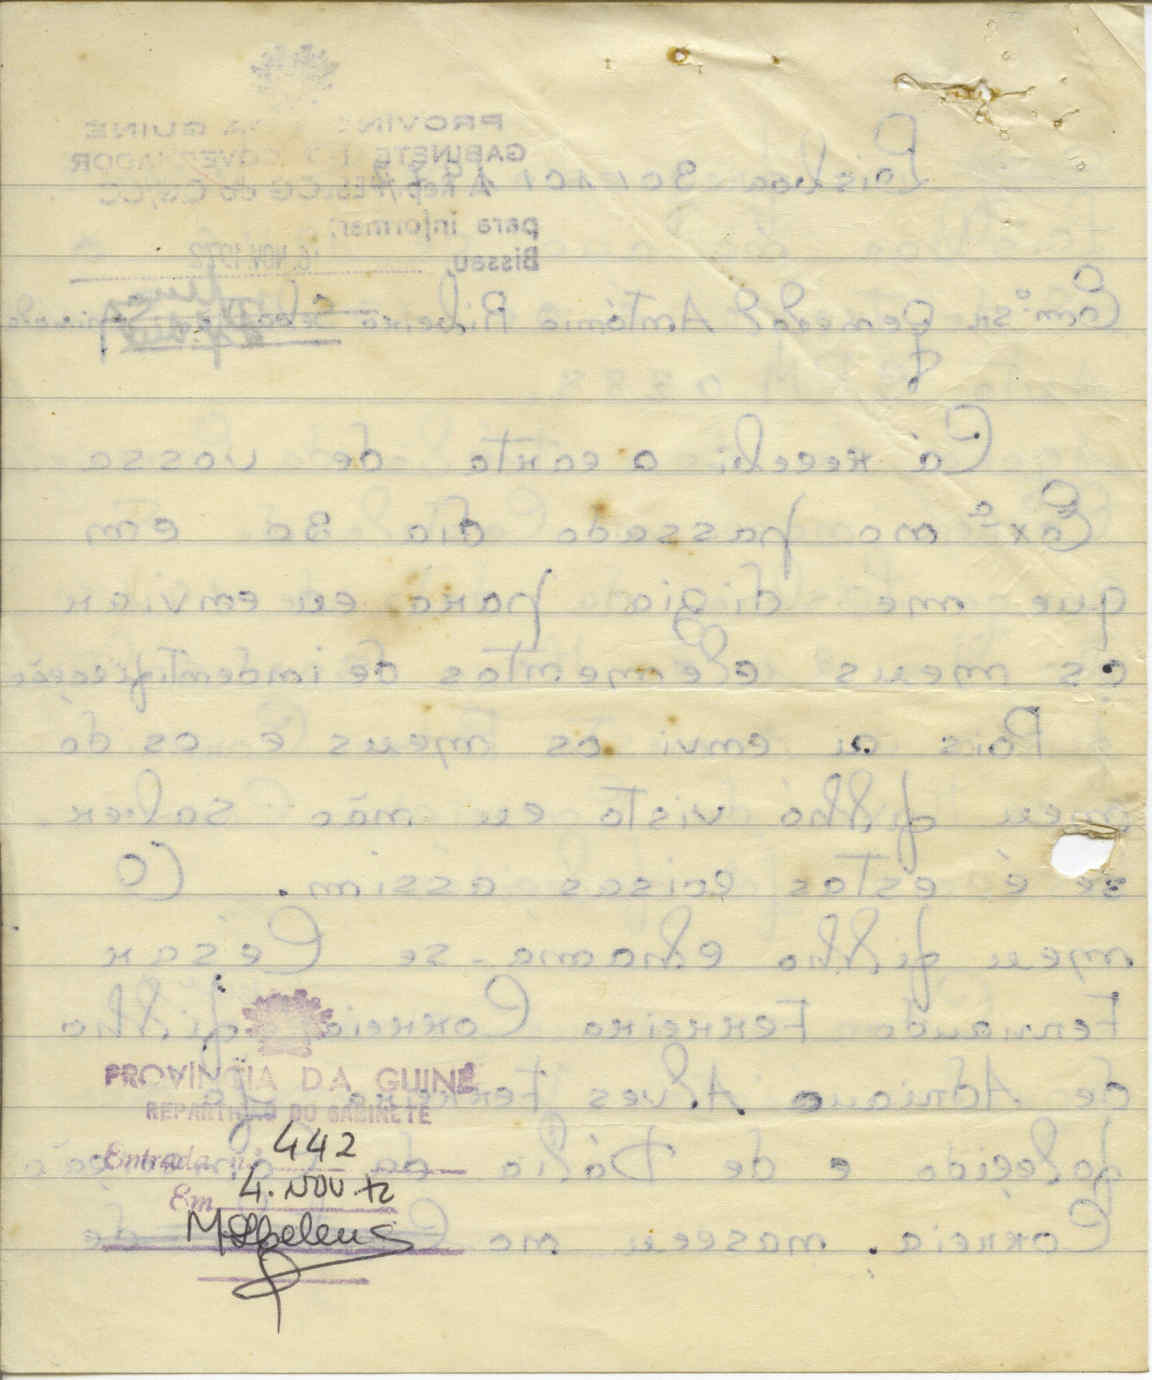 PROVÍNCIA DA GUINÉ
GABINETE DO GOVERNADOR
Lisboa 30/10/
para informar:
Bissau, 16. NOV. 1972
General António Ribeiro Spinola
Cá recebi a carta de vossa
Exª no passado dia 30 em
que me digia para eu enviar
os meus elementos de indentificação
Pois ai envi os meus e os do
meu filho visto eu não saber
se é estas coisas assim. O
meu filho chama-se César
Fernando Ferreira Correia filho
de Adriano Alves Ferreira
falecido e de Dália da
Correia. nasceu no de
PROVÍNCIA DA GUINÉ
REPARTIÇÃO DO GABINETE
Entrada n.º 442
Em 4. NOV. 72